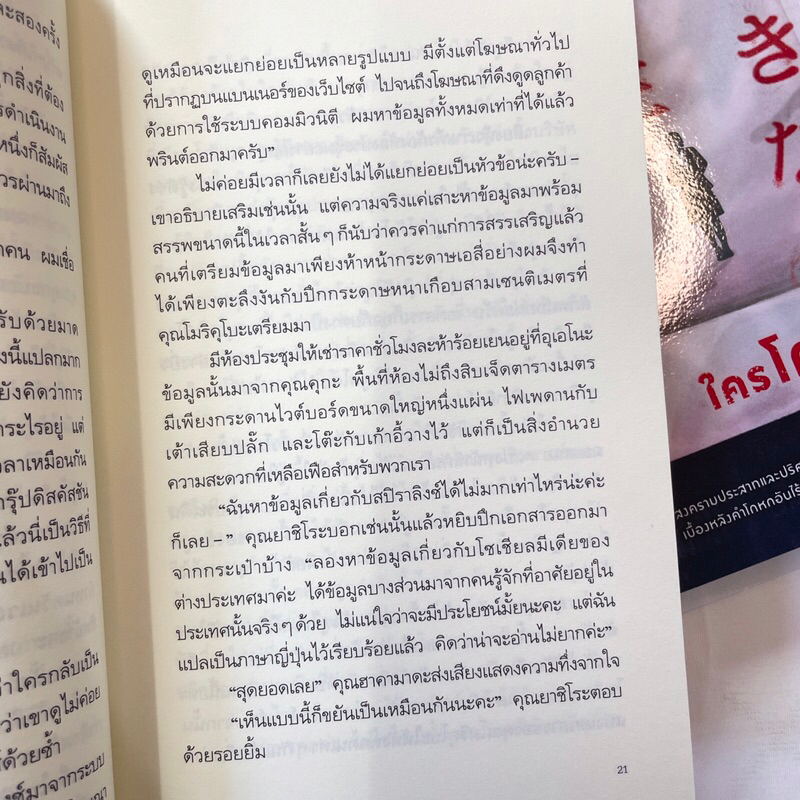 ละสองครั้ง
กสิ่งที่ต้อง
รดำเนินงาน
หนึ่งก็สัมผัส
วรผ่านมาถึง
าคน ผมเชื่อ
รับด้วยมาด
งนี้แปลกมาก
ยังคิดว่าการ
าระไรอยู่ แต่
ลาเหมือนกัน
กรุ๊ปดิสคัสชัน
ล้วนี่เป็นวิธีที่
นได้เข้าไปเป็น
ว่าใครกลับเป็น
ว่าเขาดูไม่ค่อย
สด้วยซ้ำ
งซ์มาจากระบบ
ดูเหมือนจะแยกย่อยเป็นหลายรูปแบบ มีตั้งแต่โฆษณาทั่วไป
ที่ปรากฏบนแบนเนอร์ของเว็บไซต์ ไปจนถึงโฆษณาที่ดึงดูดลูกค้า
ด้วยการใช้ระบบคอมมิวนิตี ผมหาข้อมูลทั้งหมดเท่าที่ได้แล้ว
พรินต์ออกมาครับ”
ไม่ค่อยมีเวลาก็เลยยังไม่ได้แยกย่อยเป็นหัวข้อน่ะครับ –
เขาอธิบายเสริมเช่นนั้น แต่ความจริงแค่เสาะหาข้อมูลมาพร้อม
สรรพขนาดนี้ในเวลาสั้น ๆ ก็นับว่าควรค่าแก่การสรรเสริญแล้ว
คนที่เตรียมข้อมูลมาเพียงห้าหน้ากระดาษเอสี่อย่างผมจึงทำ
ได้เพียงตะลึงงันกับปึกกระดาษหนาเกือบสามเซนติเมตรที่
คุณโมริคุโบะเตรียมมา
มีห้องประชุมให้เช่าราคาชั่วโมงละห้าร้อยเยนอยู่ที่อุเอโนะ
ข้อมูลนั้นมาจากคุณคุกะ พื้นที่ห้องไม่ถึงสิบเจ็ดตารางเมตร
มีเพียงกระดานไวต์บอร์ดขนาดใหญ่หนึ่งแผ่น ไฟเพดานกับ
เต้าเสียบปลั๊ก และโต๊ะกับเก้าอี้วางไว้ แต่ก็เป็นสิ่งอำนวย
ความสะดวกที่เหลือเฟือสำหรับพวกเรา
“ฉันหาข้อมูลเกี่ยวกับสปิราลิงซ์ได้ไม่มากเท่าไหร่น่ะค่ะ
ก็เลย – ” คุณยาชิโระบอกเช่นนั้นแล้วหยิบปึกเอกสารออกมา
จากกระเป๋าบ้าง “ลองหาข้อมูลเกี่ยวกับโซเชียลมีเดียของ
ต่างประเทศมาค่ะ ได้ข้อมูลบางส่วนมาจากคนรู้จักที่อาศัยอยู่ใน
ประเทศนั้นจริง ๆ ด้วย ไม่แน่ใจว่าจะมีประโยชน์มั้ยนะคะ แต่ฉัน
แปลเป็นภาษาญี่ปุ่นไว้เรียบร้อยแล้ว คิดว่าน่าจะอ่านไม่ยากค่ะ”
“สุดยอดเลย” คุณฮาคามาดะส่งเสียงแสดงความทึ่งจากใจ
“เห็นแบบนี้ก็ขยันเป็นเหมือนกันนะคะ” คุณยาชิโระตอบ
ด้วยรอยยิ้ม
21
き
な
ใครโก
สงครามประสาทและปริศ
เบื้องหลังคำโกหกอันไร้